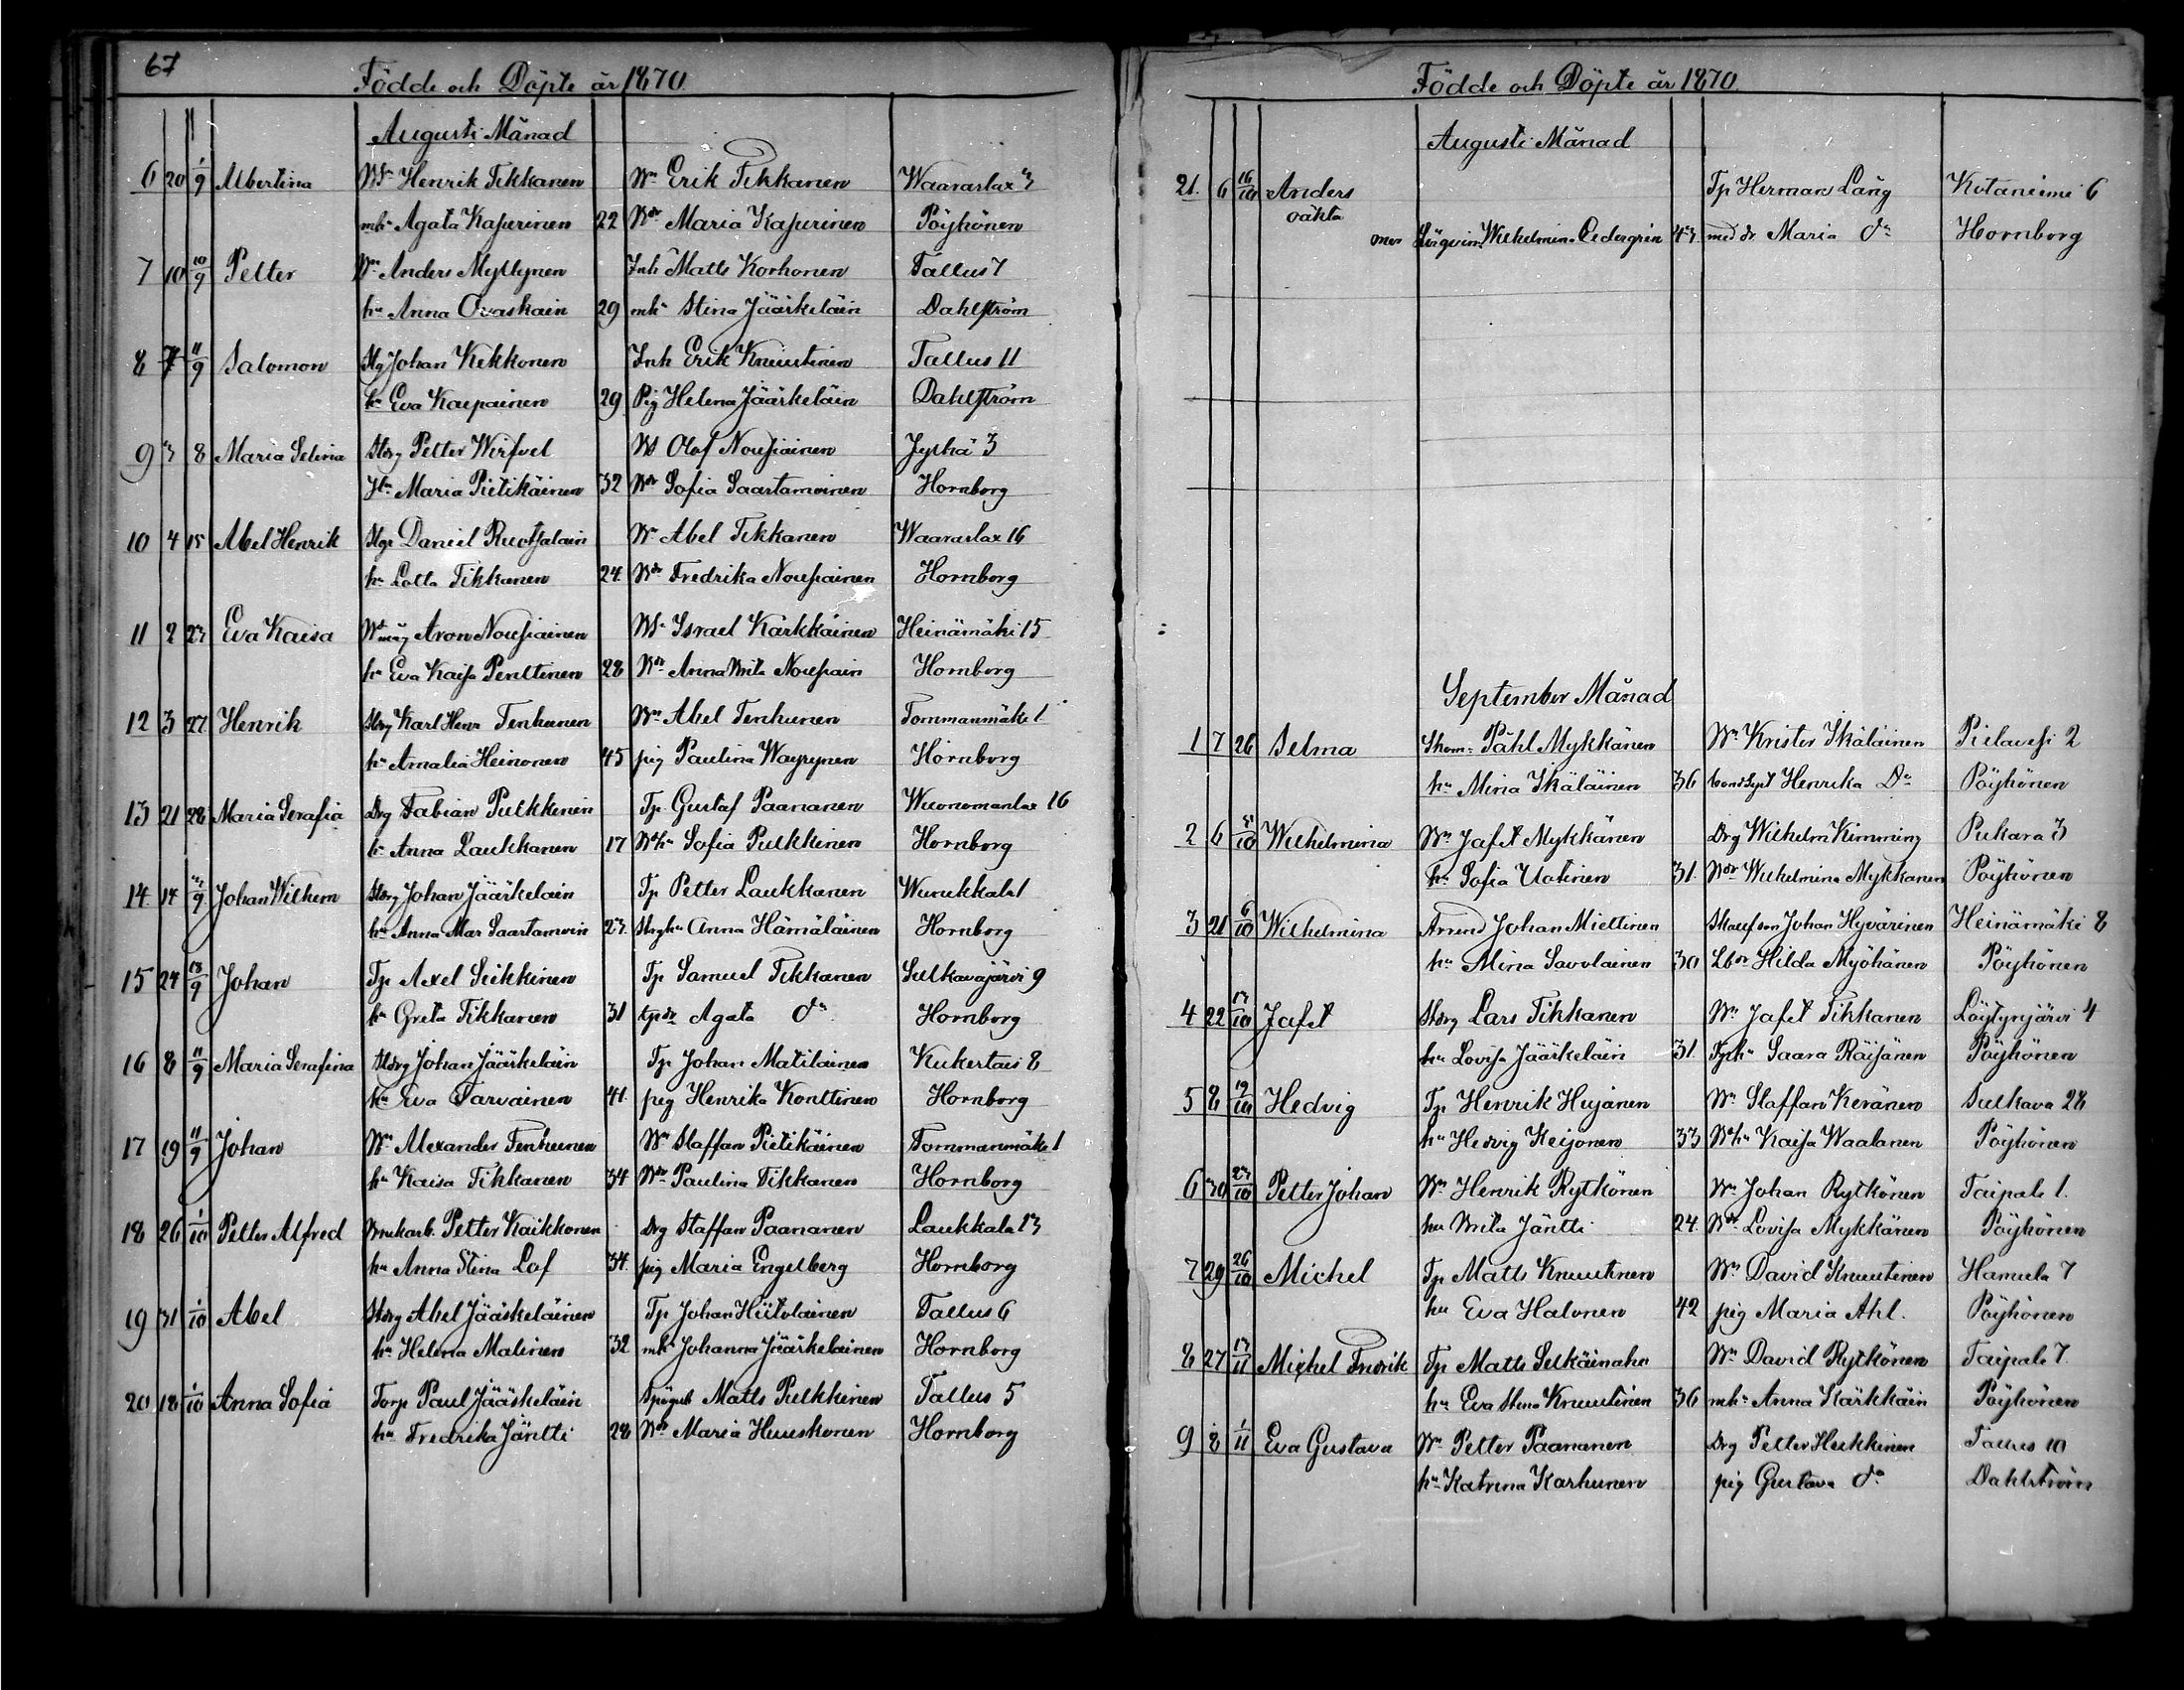 67
Födde och Döpte år 1870.
Augusti Månad
6 20 1/9 Albertina Henrik Tikkanen Wn Erik Tikkanen Waaraslax 3
mhn Agata Kaperinen 22 Wdr Maria Kaperinen Pöyhönen
7 10 10/9 Petter Wn Anders Myllynen Inh Matts Korhonen Tallus 7
hu Anna Ovaskain 29 mhn Stina Jääskeläin Dahlström
8 7 11/9 Salomon Johan Kekkonen Inh Erik Knuutinen Tallus 11
hu Eva Karpainen 29 Pig Helena Jääskeläin Dahlström
9 3 8 Maria Selina Petter Wirfvel Olof Nousiainen Jylhä 3
Maria Pietikäinen 32 Wdr Sofia Saastamoinen Hornborg
10 4 15 Abel Henrik Daniel Ruotsalain Wn Abel Tikkanen Waaraslax 16
hu Lotta Tikkanen 24 Wdr Fredrika Nousiainen Hornborg
11 2 23 Eva Kaisa Aron Nousiainen Israel Kärkkäinen Heinämäki 15
hu Eva Kaisa Penttinen 28 Wdr Anna Brita Nousiain Hornborg
12 3 27 Henrik Karl Henr Tenhunen Wn Abel Tenhunen Tommanmäki 1
hu Amalia Heinonen 45 pig Paulina Wäyrynen Hornborg
13 21 28 Maria Serafia Drg Fabian Pulkkinen Tp. Gustaf Paananen Wuonomanlax 16
hu Anna Laukkanen 17 Whu Sofia Pulkkinen Hornborg
14 14 /9 Johan Wilhem Johan Jääskeläin Tp Petter Laukkanen Wurukkala 1
hu Anna Mar Saastamoin 23. Anna Hämäläinen Hornborg
15 24 /9 Johan Tp Axel Seikkinen Tp Samuel Tikkanen Sulkavajärvi 9
hu Greta Tikkanen 31 tpdr Agata do Hornborg
16 8 11/9 Maria Serafina Johan Jääskeläin Tp Johan Matilainen Kukertais 8
hu Eva Tarvainen 41. pig Henrika Konttinen Hornborg
17 19 11/9 Johan Wn Alexander Tenhunen Wn Staffan Pietikäinen Tommanmäki 1
hu Kaisa Tikkanen 34 Wdr Paulina Tikkanen Hornborg
18 26 1/10 Petter Alfred Brukarb. Petter Kaikkonen Drg Staffan Paananen Laukkala 13
hu Anna Stina Lof 34. pig Maria Engelberg Hornborg
19 31 1/10 Abel Abel Jääskeläinen Tp Johan Hiitolainen Tallus 6
hu Helena Malinen 32 mhn Johanna Jääskeläinen Hornborg
20 18 1/10 Anna Sofia Torp Paul Jääskeläin Matts Pulkkinen Tallus 5
hu Fredrika Jäntti 28 Wdr Maria Huuskonen Hornborg
Födde och Döpte år 1870.
Augusti Månad
21. 6 16/10 Anders Tp Herman Lång Kotaniemi 6
oäkta Wilhelmina Cedergrén 43. Maria do Hornborg
September Månad
1 7 26 Selma Skom. Påhl Mykkänen Wn Krister Ikäläinen Pielavesi 2
hu Mina Ikäläinen 36 Henrika Do Pöyhönen
2 6 /10 Wilhelmina Wn Jafet Mykkänen Drg Wilhelm Kimming Pukara 3
hu Sofia Uotinen 31. Wdr Wilhelmina Mykkänen Pöyhönen
3 21 6/10 Wilhelmina Arrend Johan Miettinen Johan Hyvärinen Heinämäki 8
hu Mina Savolainen 30 Hilda Myöhänen Pöyhönen
4 22 /10 Jafet Lars Tikkanen Wn Jafet Tikkanen Löytynjärvi 4
hu Lovisa Jääskeläin 31. Saara Räisänen Pöyhönen
5 8 19/10 Hedvig Tp Henrik Hujanen Wn Staffan Keränen Sulkava 28
hu Hedvig Keijonen 33 Whu Kaisa Waalanen Pöyhönen
6 30 23/10 Petter Johan Wn Henrik Rytkönen Wn Johan Rytkönen Taipale 1.
hu Brita Jäntti 24. Wdr Lovisa Mykkänen Pöyhönen
7 29 26/10 Michel Tp Matts Knuutinen Wn David Knuutinen Hamula 7
hu Eva Halonen 42 pig Maria Ahl. Pöyhönen
8 27 /11 Michel Fredrik Tp Matts Selkäinaho Wn David Rytkönen Taipale 7.
hu Eva Stina Knuutinen 36 mhn Anna Kärkkäin Pöyhönen
9 8 1/11 Eva Gustava Wn Petter Paananen Drg Petter Heikkinen Tallus 10
hu Katrina Karhunen pig Gustava do Dahlström